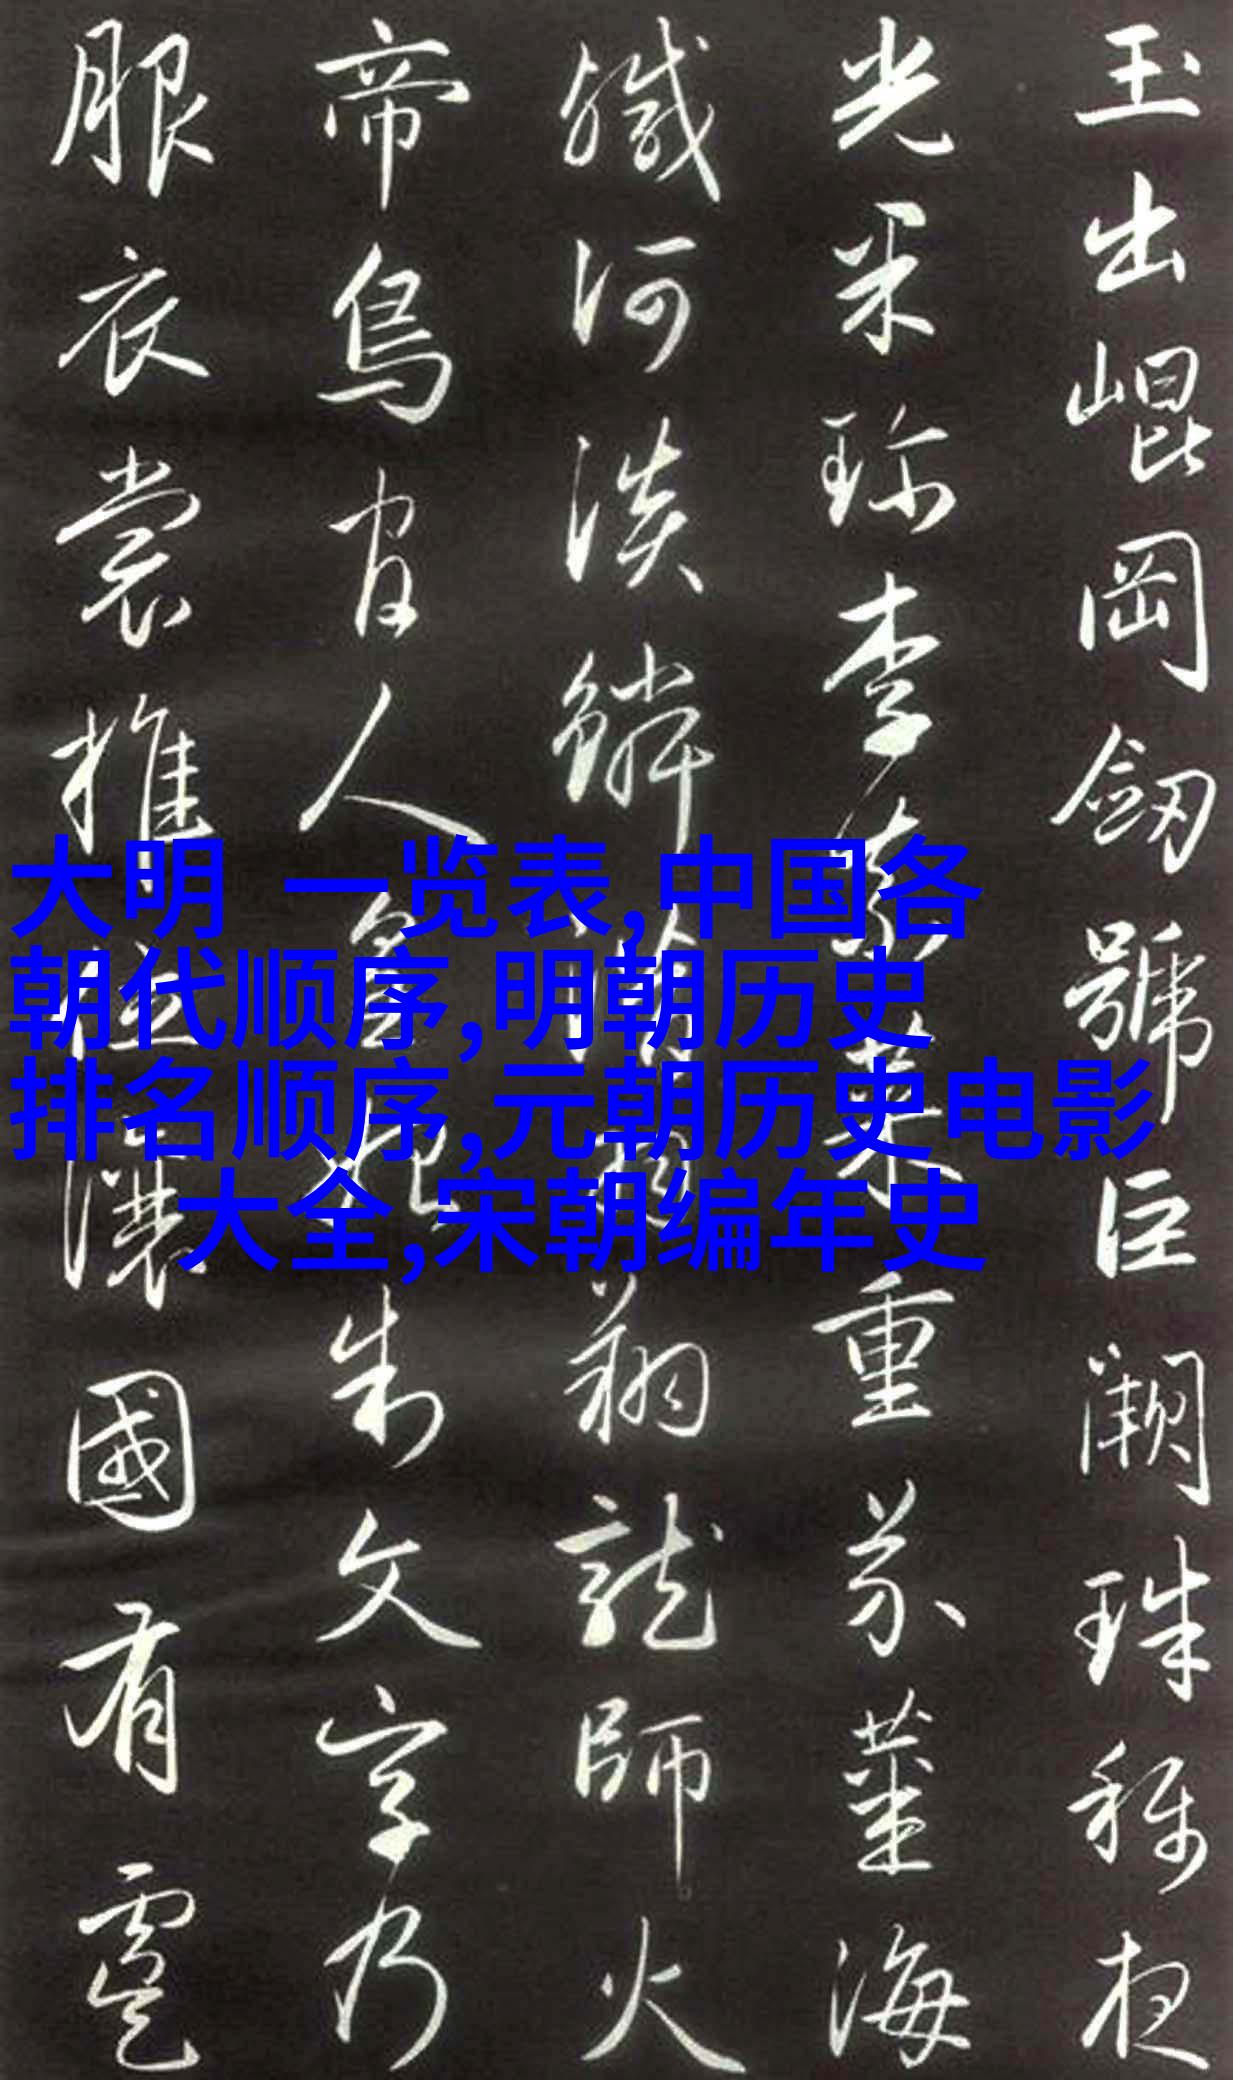 玉出崐岡劔號巨闕珠稱夜
光果珍李柰菜重芥薑海
鹹河淡鱗潛羽翔龍師火
帝鳥官人皇始制文字乃
服衣裳推位讓國有虞
大明 一览表,中国各
朝代顺序,明朝历史
排名顺序,元朝历史电影
大全,宋朝编年史